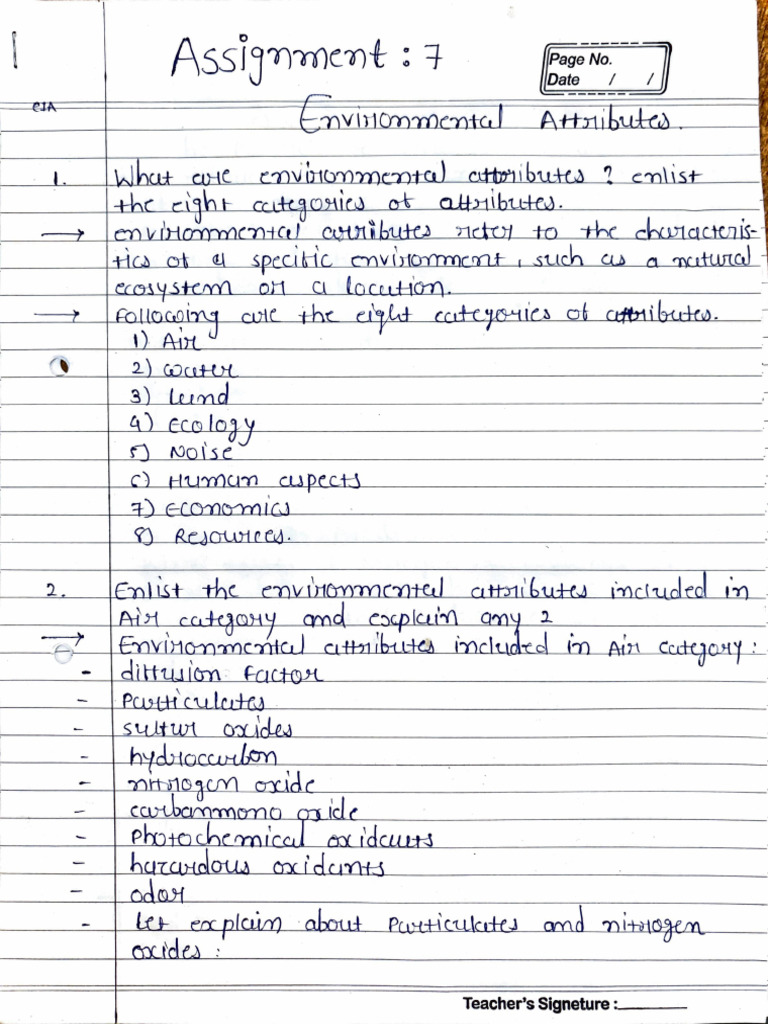 1
Assignment : 7
Page No.
Date / /
EIA
Environmental Attributes.
1. What are environmental attributes ? enlist
the eight categories of attributes.
→ environmental attributes refer to the characteris-
tics of a specific environment, such as a natural
ecosystem or a location.
→ Following are the eight categories of attributes.
1) Air
2) Water
3) Land
4) Ecology
5) Noise
6) Human aspects
7) Economics
8) Resources.
2. Enlist the environmental attributes included in
Air category and explain any 2
→ Environmental attributes included in Air category :
- diffusion factor
- Particulates
- sulfur oxides
- hydrocarbon
- nitrogen oxide
- carbonmono oxide
- Photochemical oxidants
- hazardous oxidants
- odor
- Let explain about Particulates and nitrogen
oxides :
Teacher's Signeture :